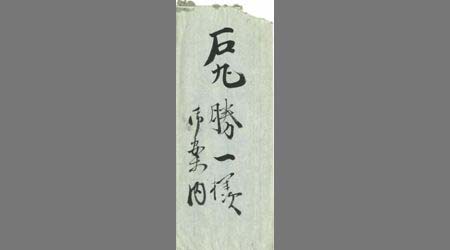 石丸勝一様
御案内